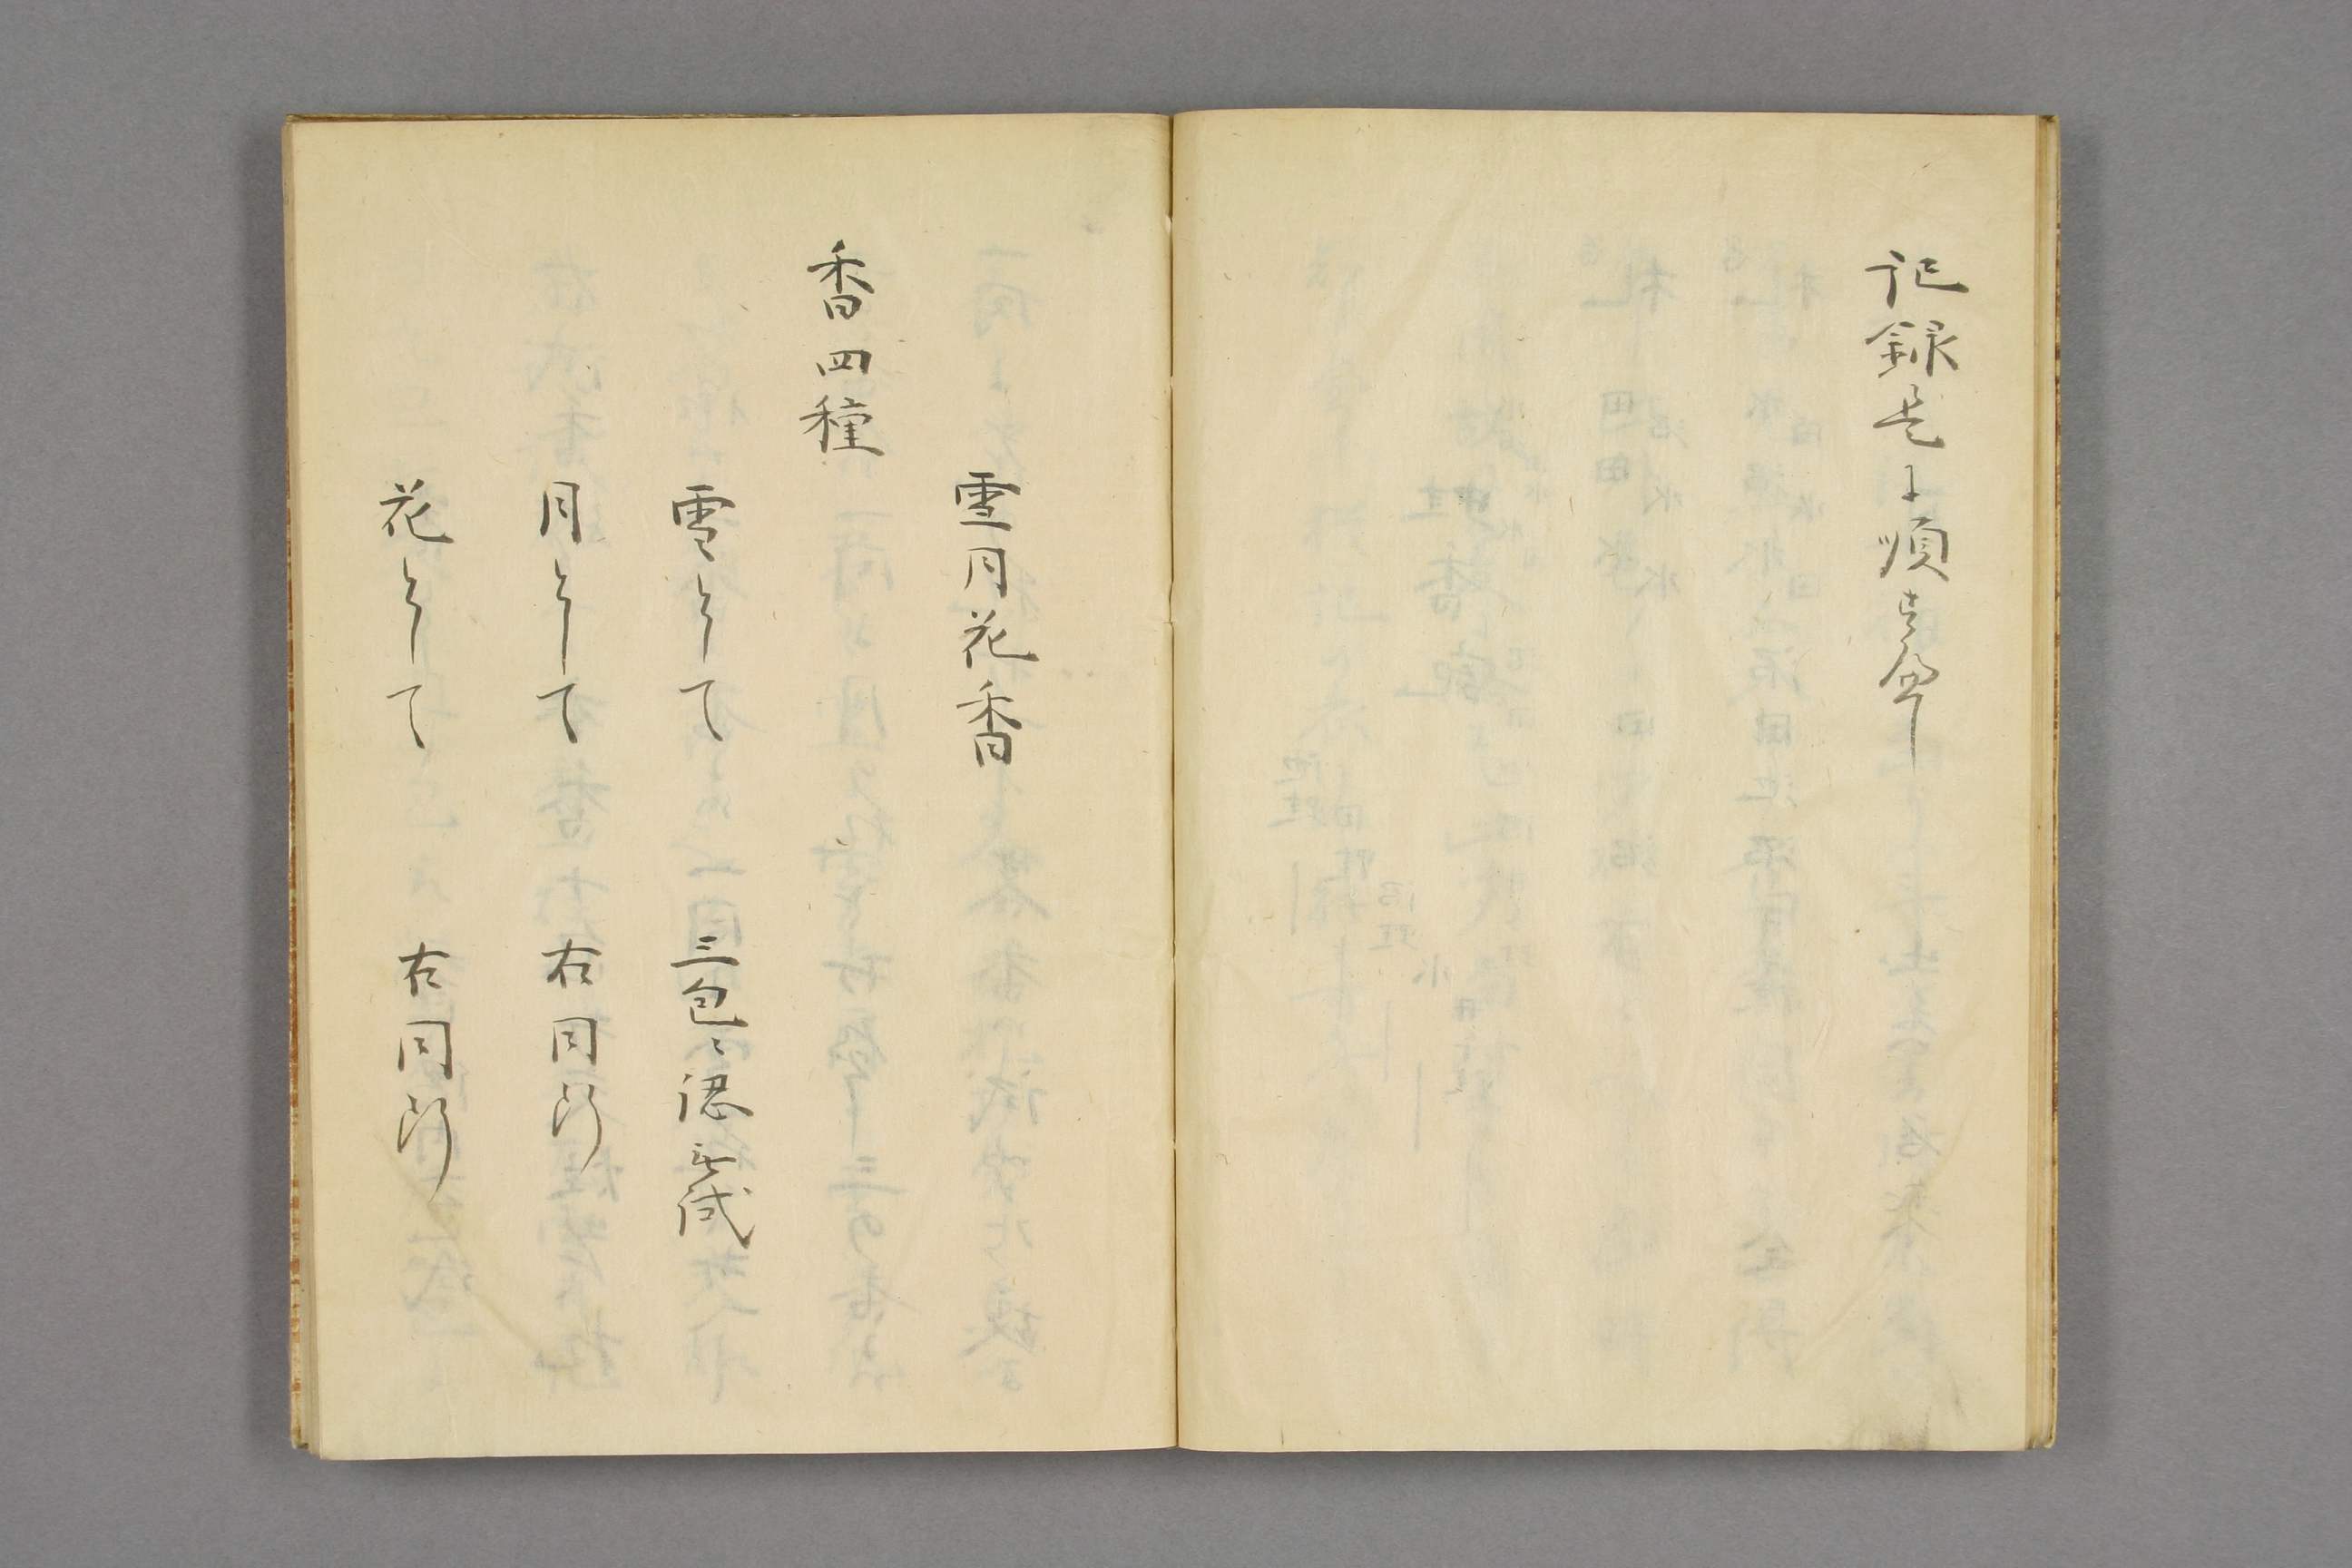 記録是に順す
雪月花香
香四種
雪として 三包ニ認無試
月として 右同断
花として 右同断